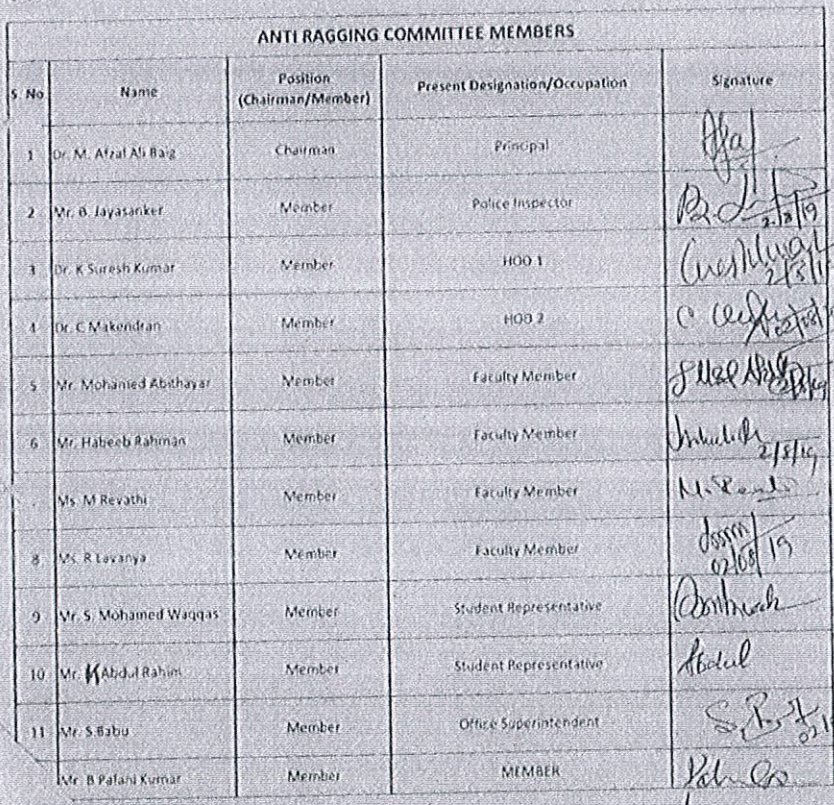 ANTI RAGGING COMMITTEE MEMBERS
S. No Name Position (Chairman/Member) Present Designation/Occupation Signature
1 Dr. M. Afzal Ali Baig Chairman Principal
2 Mr. B. Jayasanker Member Police Inspector 2/8/19
3 Dr. K Suresh Kumar Member HOD 1
4 Dr. C Makendran Member HOD 2
5 Mr. Mohamed Abithayar Member Faculty Member
6 Mr. Habeeb Rahman Member Faculty Member 2/8/19
Ms. M Revathi Member Faculty Member
8 Ms. R Lavanya Member Faculty Member 02/08/19
9 Mr. S. Mohamed Waqqas Member Student Representative
10 Mr. K Abdul Rahim Member Student Representative Abdul
11 Mr. S Babu Member Office Superintendent
Mr. B Palani Kumar Member MEMBER